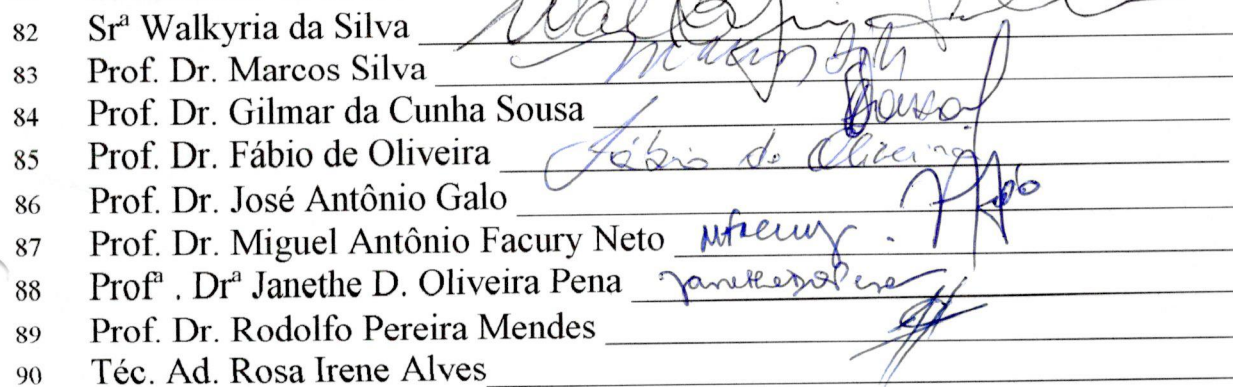 82 Srª Walkyria da Silva
83 Prof. Dr. Marcos Silva
84 Prof. Dr. Gilmar da Cunha Sousa Sousa
85 Prof. Dr. Fábio de Oliveira Fábio de Oliveira
86 Prof. Dr. José Antônio Galo
87 Prof. Dr. Miguel Antônio Facury Neto
88 Profª . Drª Janethe D. Oliveira Pena
89 Prof. Dr. Rodolfo Pereira Mendes
90 Téc. Ad. Rosa Irene Alves